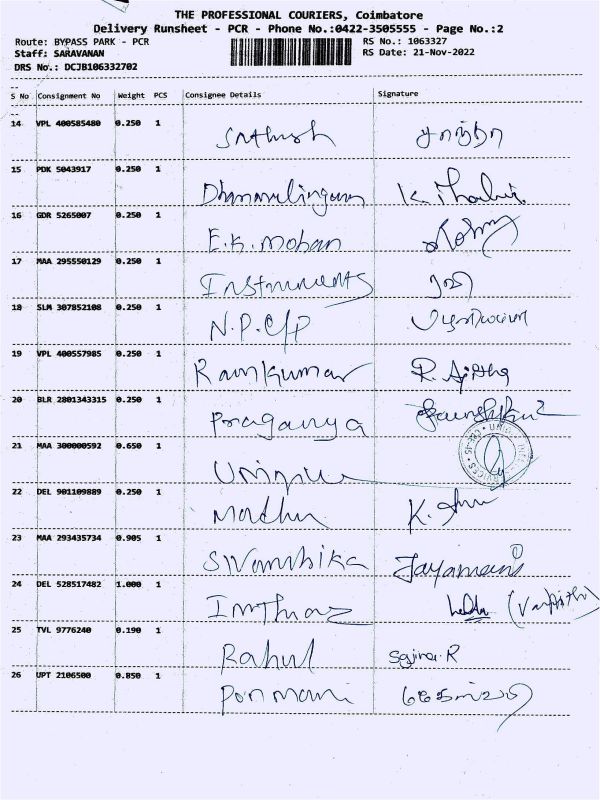 THE PROFESSIONAL COURIERS, Coimbatore
Delivery Runsheet - PCR - Phone No.:0422-3505555 - Page No.:2
Route: BYPASS PARK - PCR RS No.: 1063327
Staff: SARAVANAN RS Date: 21-Nov-2022
DRS No.: DCJB106332702
S No Consignment No Weight PCS Consignee Details Signature
14 VPL 400585480 0.250 1 Sathish
15 PDK 5043917 0.250 1 Dhanavalingam
16 GDR 5265007 0.250 1 E.K. Mohan
17 MAA 295550129 0.250 1 Instruments
18 SLM 307852108 0.250 1 N.P.
19 VPL 400557985 0.250 1 Ramkumar R. Ajitha
20 BLR 2801343315 0.250 1 Praganya
21 MAA 300000592 0.650 1 Unique
22 DEL 901109889 0.250 1 Madhu
23 MAA 293435734 0.905 1 Swamshika Jayamani
24 DEL 528517482 1.000 1 Imthiaz
25 TVL 9776240 0.190 1 Rahul Sajina.R
26 UPT 2106500 0.850 1 Ponmani